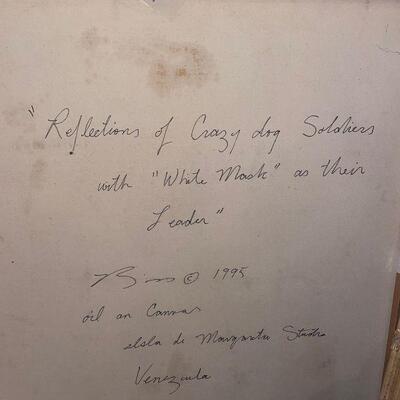 "Reflections of Crazy dog Soldiers
with "White Mask" as their
Leader"
© 1995
oil an Canvas
elsla de Margarita Studio
Venezuela